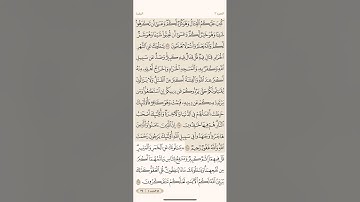 الجزء ٢ البقرة
كُتِبَ عَلَيْكُمُ ٱلْقِتَالُ وَهُوَ كُرْهٌ لَّكُمْ وَعَسَىٰٓ أَن تَكْرَهُوا۟
شَيْـًٔا وَهُوَ خَيْرٌ لَّكُمْ وَعَسَىٰٓ أَن تُحِبُّوا۟ شَيْـًٔا وَهُوَ شَرٌّ
لَّكُمْ وَٱللَّهُ يَعْلَمُ وَأَنتُمْ لَا تَعْلَمُونَ ٢١٦ يَسْـَٔلُونَكَ عَنِ ٱلشَّهْرِ
ٱلْحَرَامِ قِتَالٍ فِيهِ قُلْ قِتَالٌ فِيهِ كَبِيرٌ وَصَدٌّ عَن سَبِيلِ
ٱللَّهِ وَكُفْرٌۢ بِهِۦ وَٱلْمَسْجِدِ ٱلْحَرَامِ وَإِخْرَاجُ أَهْلِهِۦ مِنْهُ
أَكْبَرُ عِندَ ٱللَّهِ وَٱلْفِتْنَةُ أَكْبَرُ مِنَ ٱلْقَتْلِ وَلَا يَزَالُونَ
يُقَـٰتِلُونَكُمْ حَتَّىٰ يَرُدُّوكُمْ عَن دِينِكُمْ إِنِ ٱسْتَطَـٰعُوا۟ وَمَن
يَرْتَدِدْ مِنكُمْ عَن دِينِهِۦ فَيَمُتْ وَهُوَ كَافِرٌ فَأُو۟لَـٰٓئِكَ
حَبِطَتْ أَعْمَـٰلُهُمْ فِى ٱلدُّنْيَا وَٱلْـَٔاخِرَةِ وَأُو۟لَـٰٓئِكَ أَصْحَـٰبُ
ٱلنَّارِ هُمْ فِيهَا خَـٰلِدُونَ ٢١٧ إِنَّ ٱلَّذِينَ ءَامَنُوا۟ وَٱلَّذِينَ
هَاجَرُوا۟ وَجَـٰهَدُوا۟ فِى سَبِيلِ ٱللَّهِ أُو۟لَـٰٓئِكَ يَرْجُونَ رَحْمَتَ
ٱللَّهِ وَٱللَّهُ غَفُورٌ رَّحِيمٌ ٢١٨ يَسْـَٔلُونَكَ عَنِ ٱلْخَمْرِ وَٱلْمَيْسِرِ
قُلْ فِيهِمَآ إِثْمٌ كَبِيرٌ وَمَنَـٰفِعُ لِلنَّاسِ وَإِثْمُهُمَآ أَكْبَرُ
مِن نَّفْعِهِمَا وَيَسْـَٔلُونَكَ مَاذَا يُنفِقُونَ قُلِ ٱلْعَفْوَ كَذَٰلِكَ
يُبَيِّنُ ٱللَّهُ لَكُمُ ٱلْـَٔايَـٰتِ لَعَلَّكُمْ تَتَفَكَّرُونَ ٢١٩